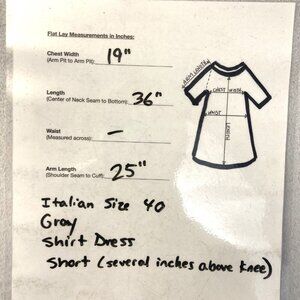 Flat Lay Measurements in Inches:
Chest Width 19"
(Arm Pit to Arm Pit)
Length 36"
(Center of Neck Seam to Bottom)
Waist –
(Measured across)
Arm Length 25"
(Shoulder Seam to Cuff)
ARM LENGTH
CHEST WIDTH
WAIST
LENGTH
Italian Size 40
Gray
Shirt Dress
Short (several inches above knee)